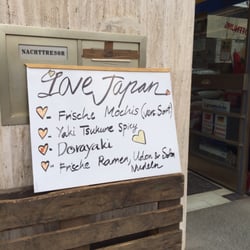 NACHTTRESOR
Love Japan
- Frische Mochis (vers. Sort)
- Yaki Tsukune Spicy
- Dorayaki
- Frische Ramen, Udon & Soba
Nudeln